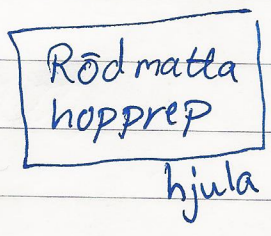 Rōd matta
hopprep
hjula